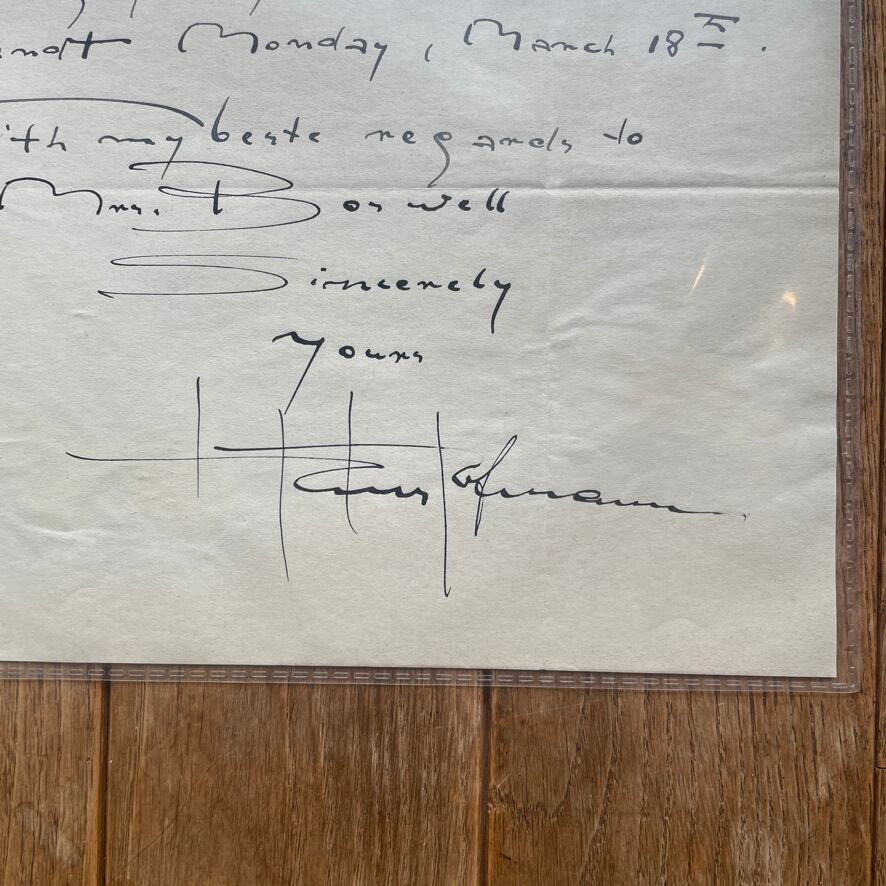 Monday, March 18th.
with my beste regards to
Mrs. Boswell
Sincerely
Yours
Hans Hofmann